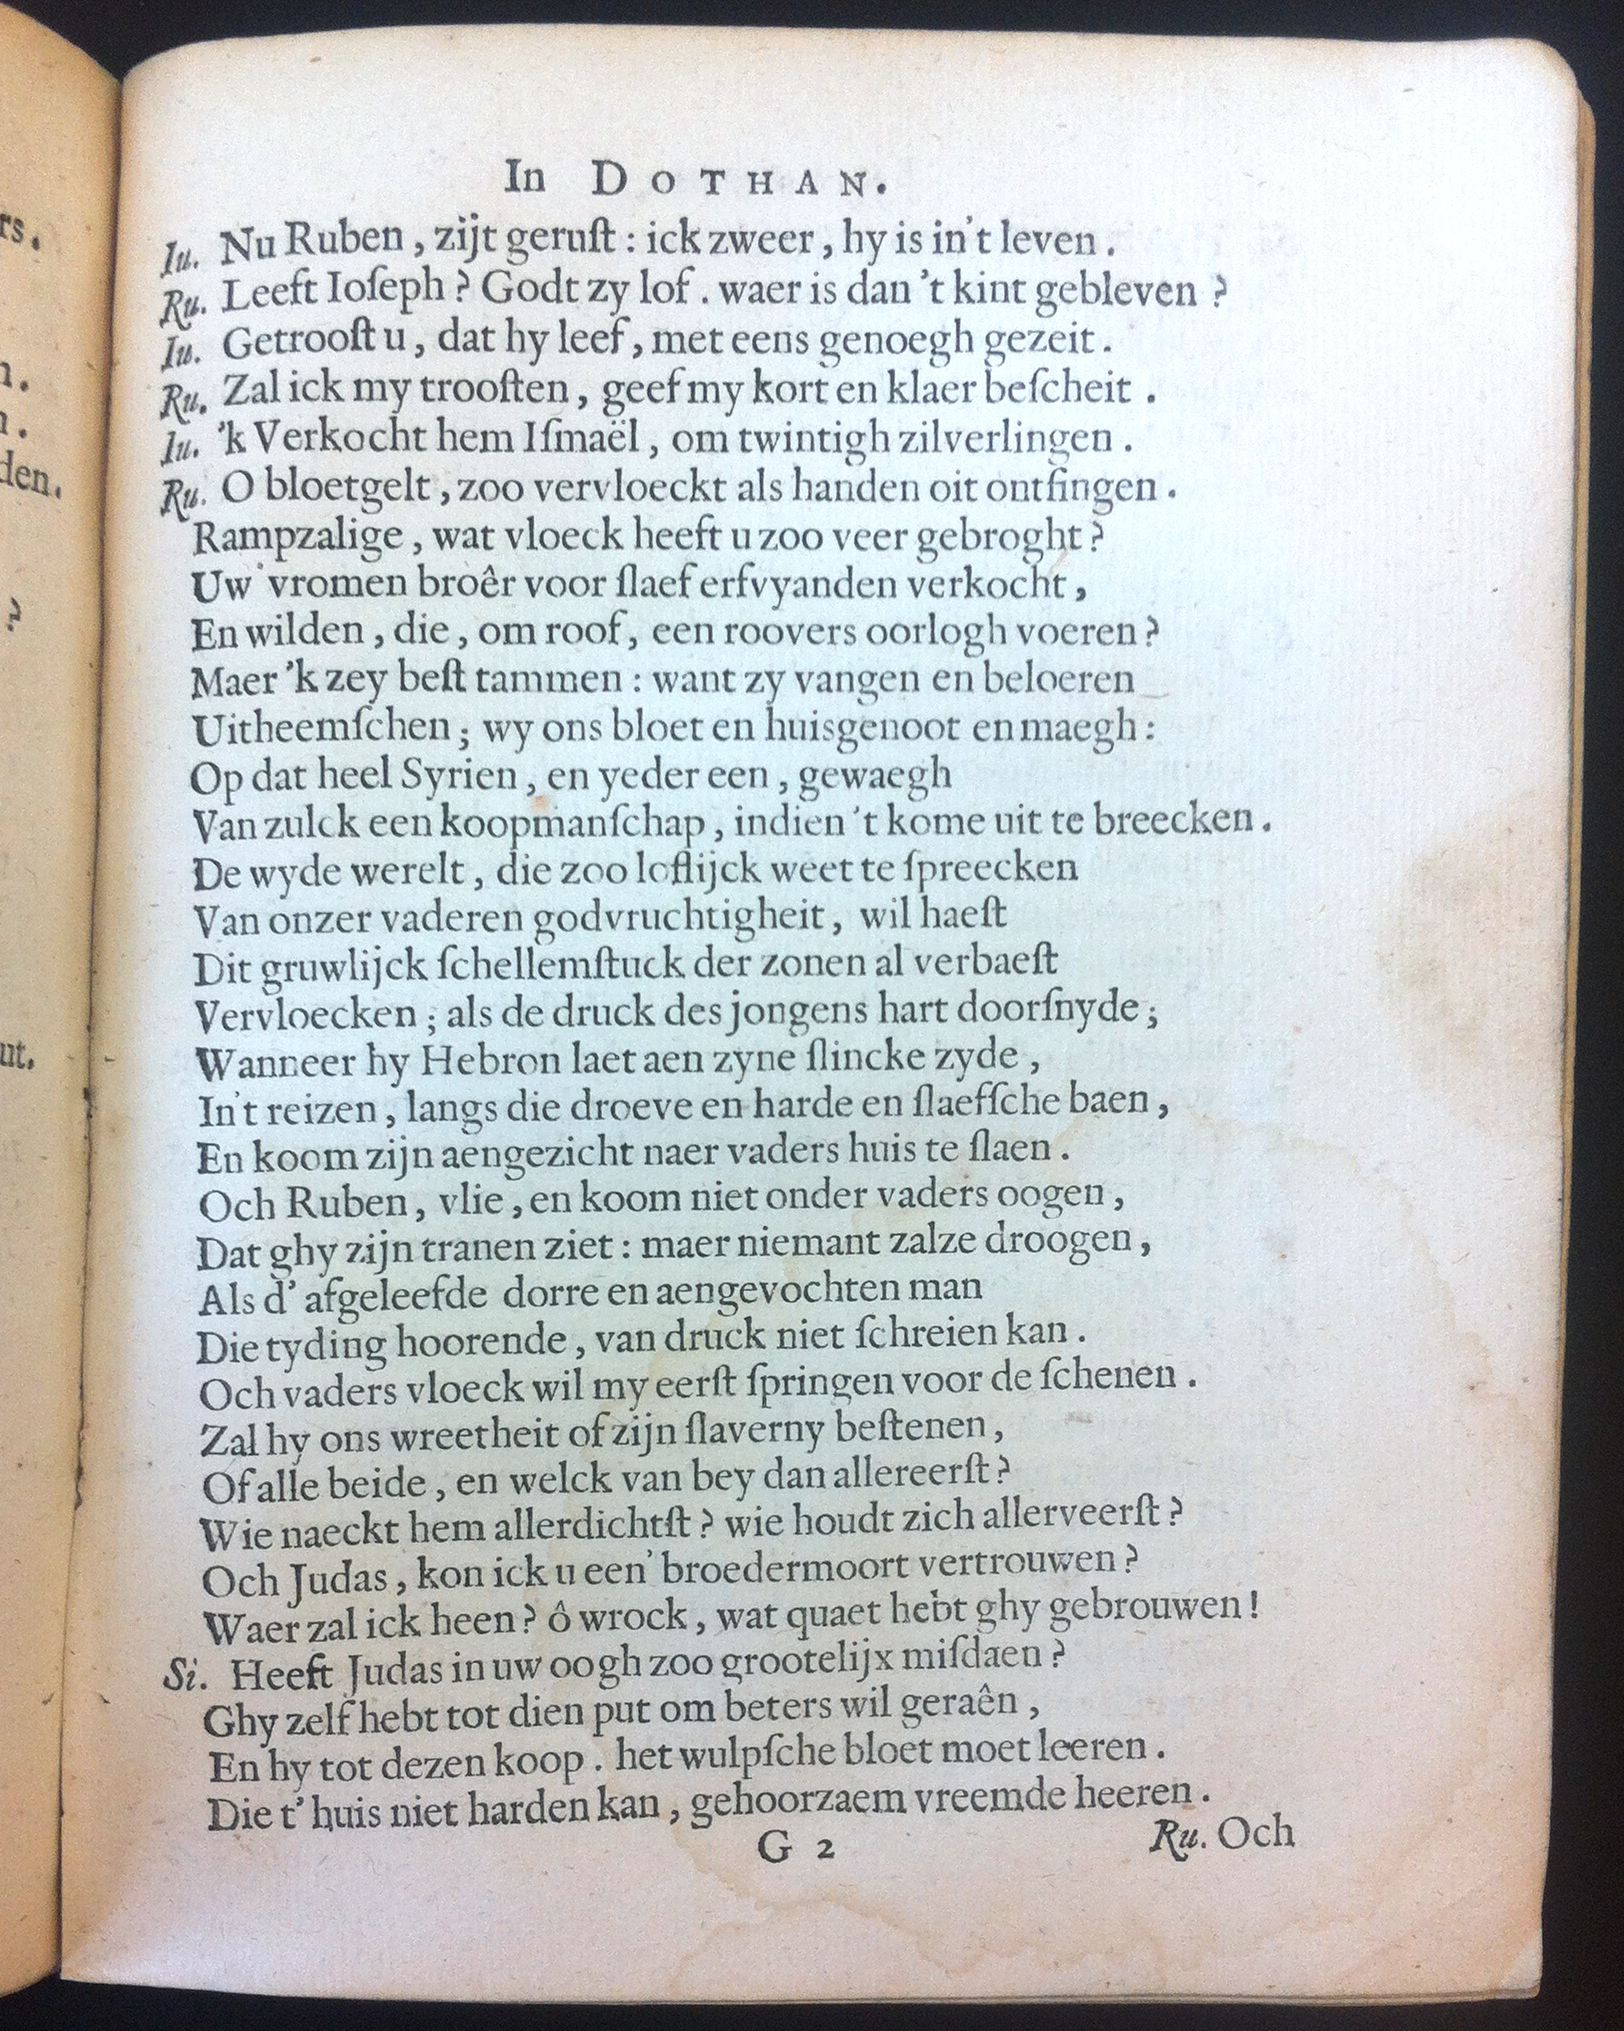 In DOTHAN.
Iu. Nu Ruben, zijt geruſt: ick zweer, hy is in't leven.
Ru. Leeft Ioſeph? Godt zy lof. waer is dan 't kint gebleven?
Iu. Getrooſt u, dat hy leef, met eens genoegh gezeit.
Ru. Zal ick my trooſten, geef my kort en klaer beſcheit.
Iu. 'k Verkocht hem Iſmaël, om twintigh zilverlingen.
Ru. O bloetgelt, zoo vervloeckt als handen oit ontfingen.
Rampzalige, wat vloeck heeft u zoo veer gebroght?
Uw' vromen broêr voor ſlaef erfvyanden verkocht,
En wilden, die, om roof, een roovers oorlogh voeren?
Maer 'k zey beſt tammen: want zy vangen en beloeren
Uitheemſchen; wy ons bloet en huisgenoot en maegh:
Op dat heel Syrien, en yeder een, gewaegh
Van zulck een koopmanſchap, indien 't kome uit te breecken.
De wyde werelt, die zoo loflijck weet te ſpreecken
Van onzer vaderen godvruchtigheit, wil haeſt
Dit gruwlijck ſchellemſtuck der zonen al verbaeſt
Vervloecken; als de druck des jongens hart doorſnyde;
Wanneer hy Hebron laet aen zyne ſlincke zyde,
In't reizen, langs die droeve en harde en ſlaefſche baen,
En koom zijn aengezicht naer vaders huis te ſlaen.
Och Ruben, vlie, en koom niet onder vaders oogen,
Dat ghy zijn tranen ziet: maer niemant zalze droogen,
Als d' afgeleefde dorre en aengevochten man
Die tyding hoorende, van druck niet ſchreien kan.
Och vaders vloeck wil my eerſt ſpringen voor de ſchenen.
Zal hy ons wreetheit of zijn ſlaverny beſtenen,
Of alle beide, en welck van bey dan allereerſt?
Wie naeckt hem allerdichtſt? wie houdt zich allerveerſt?
Och Judas, kon ick u een' broedermoort vertrouwen?
Waer zal ick heen? ô wrock, wat quaet hebt ghy gebrouwen!
Si. Heeft Judas in uw oogh zoo grootelijx miſdaen?
Ghy zelf hebt tot dien put om beters wil geraên,
En hy tot dezen koop. het wulpſche bloet moet leeren.
Die t' huis niet harden kan, gehoorzaem vreemde heeren.
G 2 Ru. Och
rs.
n.
den.
?
ut.